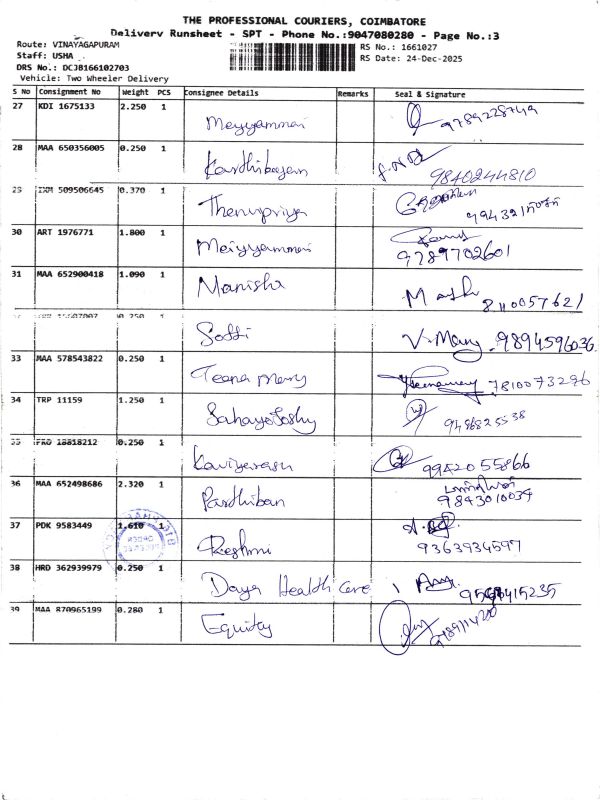 THE PROFESSIONAL COURIERS, COIMBATORE
Delivery Runsheet - SPT - Phone No.:9047080280 - Page No.:3
Route: VINAYAGAPURAM
RS No.: 1661027
Staff: USHA
RS Date: 24-Dec-2025
DRS No.: DCJB166102703
Vehicle: Two Wheeler Delivery
S No Consignment No Weight PCS Consignee Details Remarks Seal & Signature
27 KDI 1675133 2.250 1 Meiyyammai 9789228749
28 MAA 650356005 0.250 1 Karthibayan 9840244810
29 IXM 509506645 0.370 1 Thenupriya
30 ART 1976771 1.800 1 Meiyyammai 9789702601
31 MAA 652900418 1.090 1 Manisha 8110057621
0.250 1 V. Mary. 9894596036
33 MAA 578543822 0.250 1 Teena Mary 7810073296
34 TRP 11159 1.250 1 SahayaJoshy
35 PRO 18818212 0.250 1 Kaviyarasu 9942055866
36 MAA 652498686 2.320 1 Parthiban 9843010034
37 PDK 9583449 1.610 1 Reshmi 9363934597
38 HRD 362939979 0.250 1 Daya Health Care
39 MAA 870965199 0.280 1 Equity